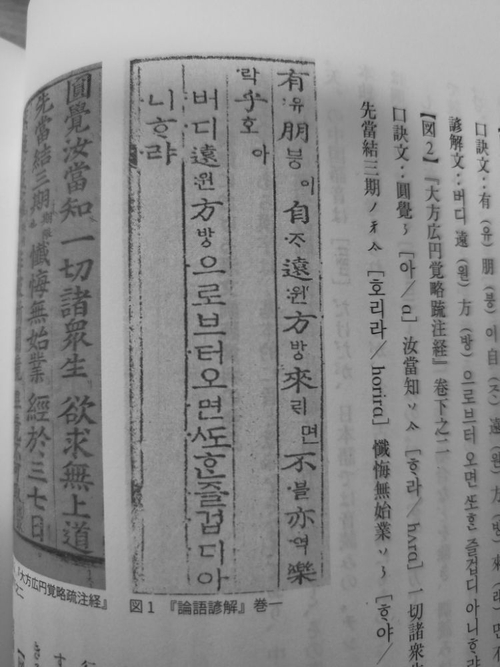 口訣文：有（유）朋（붕）이 自
諺解文：버디 遠（원）方（방）으로브터 오면 ᄯᅩᄒᆞᆫ 즐겁디 아니ᄒᆞ
【図2】『大方広円覚略疏注経』巻下之二
口訣文：圓覺 [아／a] 汝當知 [ᄒᆞ라／hʌra] 一切諸衆
先當結三期 [호리라／horira] 懺悔無始業 [ᄒᆞ야／
有유朋붕이自ᄌᆞ遠원方방來ᄅᆡ면不블亦역樂
락乎호아
버디遠원方방으로브터오면ᄯᅩᄒᆞᆫ즐겁디아
니ᄒᆞ랴
図1 『論語諺解』巻一
圓覺汝當知 一切諸衆生 欲求無上道
先當結三期 懺悔無始業 經於三七日
『大方広円覚略疏注経』